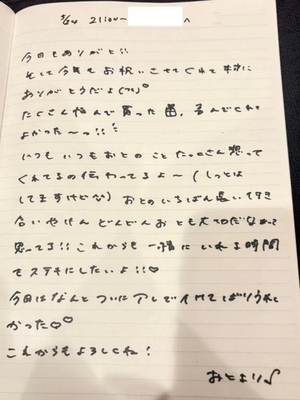 3/24 21:00〜 へ
今日もありがと!!
そして今年もお祝いさせてくれて本当に
ありがとうだよ
たくさん悩んで買った 喜んでくれて
よかった〜っ!!
いつもいつもおとのことたっくさん想って
くれてるの伝わってるよ〜(しっとは
してますけどな)おとのいちばん長い付き
合いやけんどんどんおとも大切だなって
思ってる!!これからも一緒にいれる時間
をステキにしたいよ!!♡
今日はなんとついに アレで れて うれし
かった♡♡
これからもよろしくね!
おとより♪